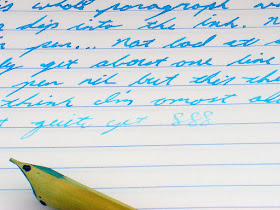 s whole paragraph and
dip into the ink. n
pen... not bad at
ly get about one line
pen nib but this th
think I'm almost al
t quite yet 888